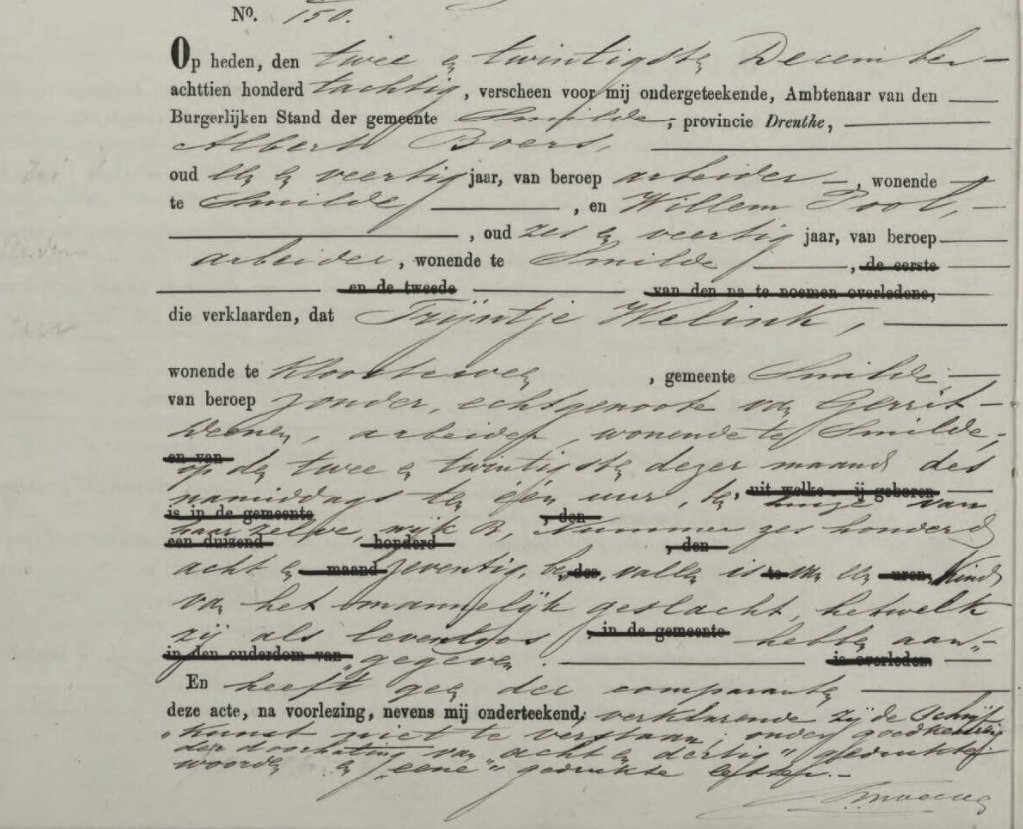 No. 150.
Op heden, den twee en twintigsten December
achttien honderd tachtig, verscheen voor mij ondergeteekende, Ambtenaar van den
Burgerlijken Stand der gemeente Smilde, provincie Drenthe,
Albert Boers,
oud een en veertig jaar, van beroep arbeider, wonende
te Smilde, en Willem Pool,
, oud zes en veertig jaar, van beroep
arbeider, wonende te Smilde, de eerste
en de tweede van den na te noemen overledene,
die verklaarden, dat Trijntje Welink,
wonende te Kloosterveen, gemeente Smilde,
van beroep zonder, echtgenoote van Gerrit
Weenen, arbeider, wonende te Smilde,
en van
op den twee en twintigsten dezer maand des
uit welke ij geboren
namiddags te één uur, ten huize van
is in de gemeente , den
dezelve, wijk B, Nummer zes honderd
een duizend honderd , den
acht en maand zeventig, be des vallen is te van een uren, kind
van het mannelijk geslacht, hetwelk
zij als levenloos , in de gemeente hebben aan-
in den ouderdom van gegeven. is overleden
En heeft geen der comparanten
deze acte, na voorlezing, nevens mij onderteekend, verklarende zij de schrijf-
kunst niet te verstaan; onder goedkeuring
der doorhaling van "acht en dertig" gedrukte
woorden en "eene" gedrukte letter.